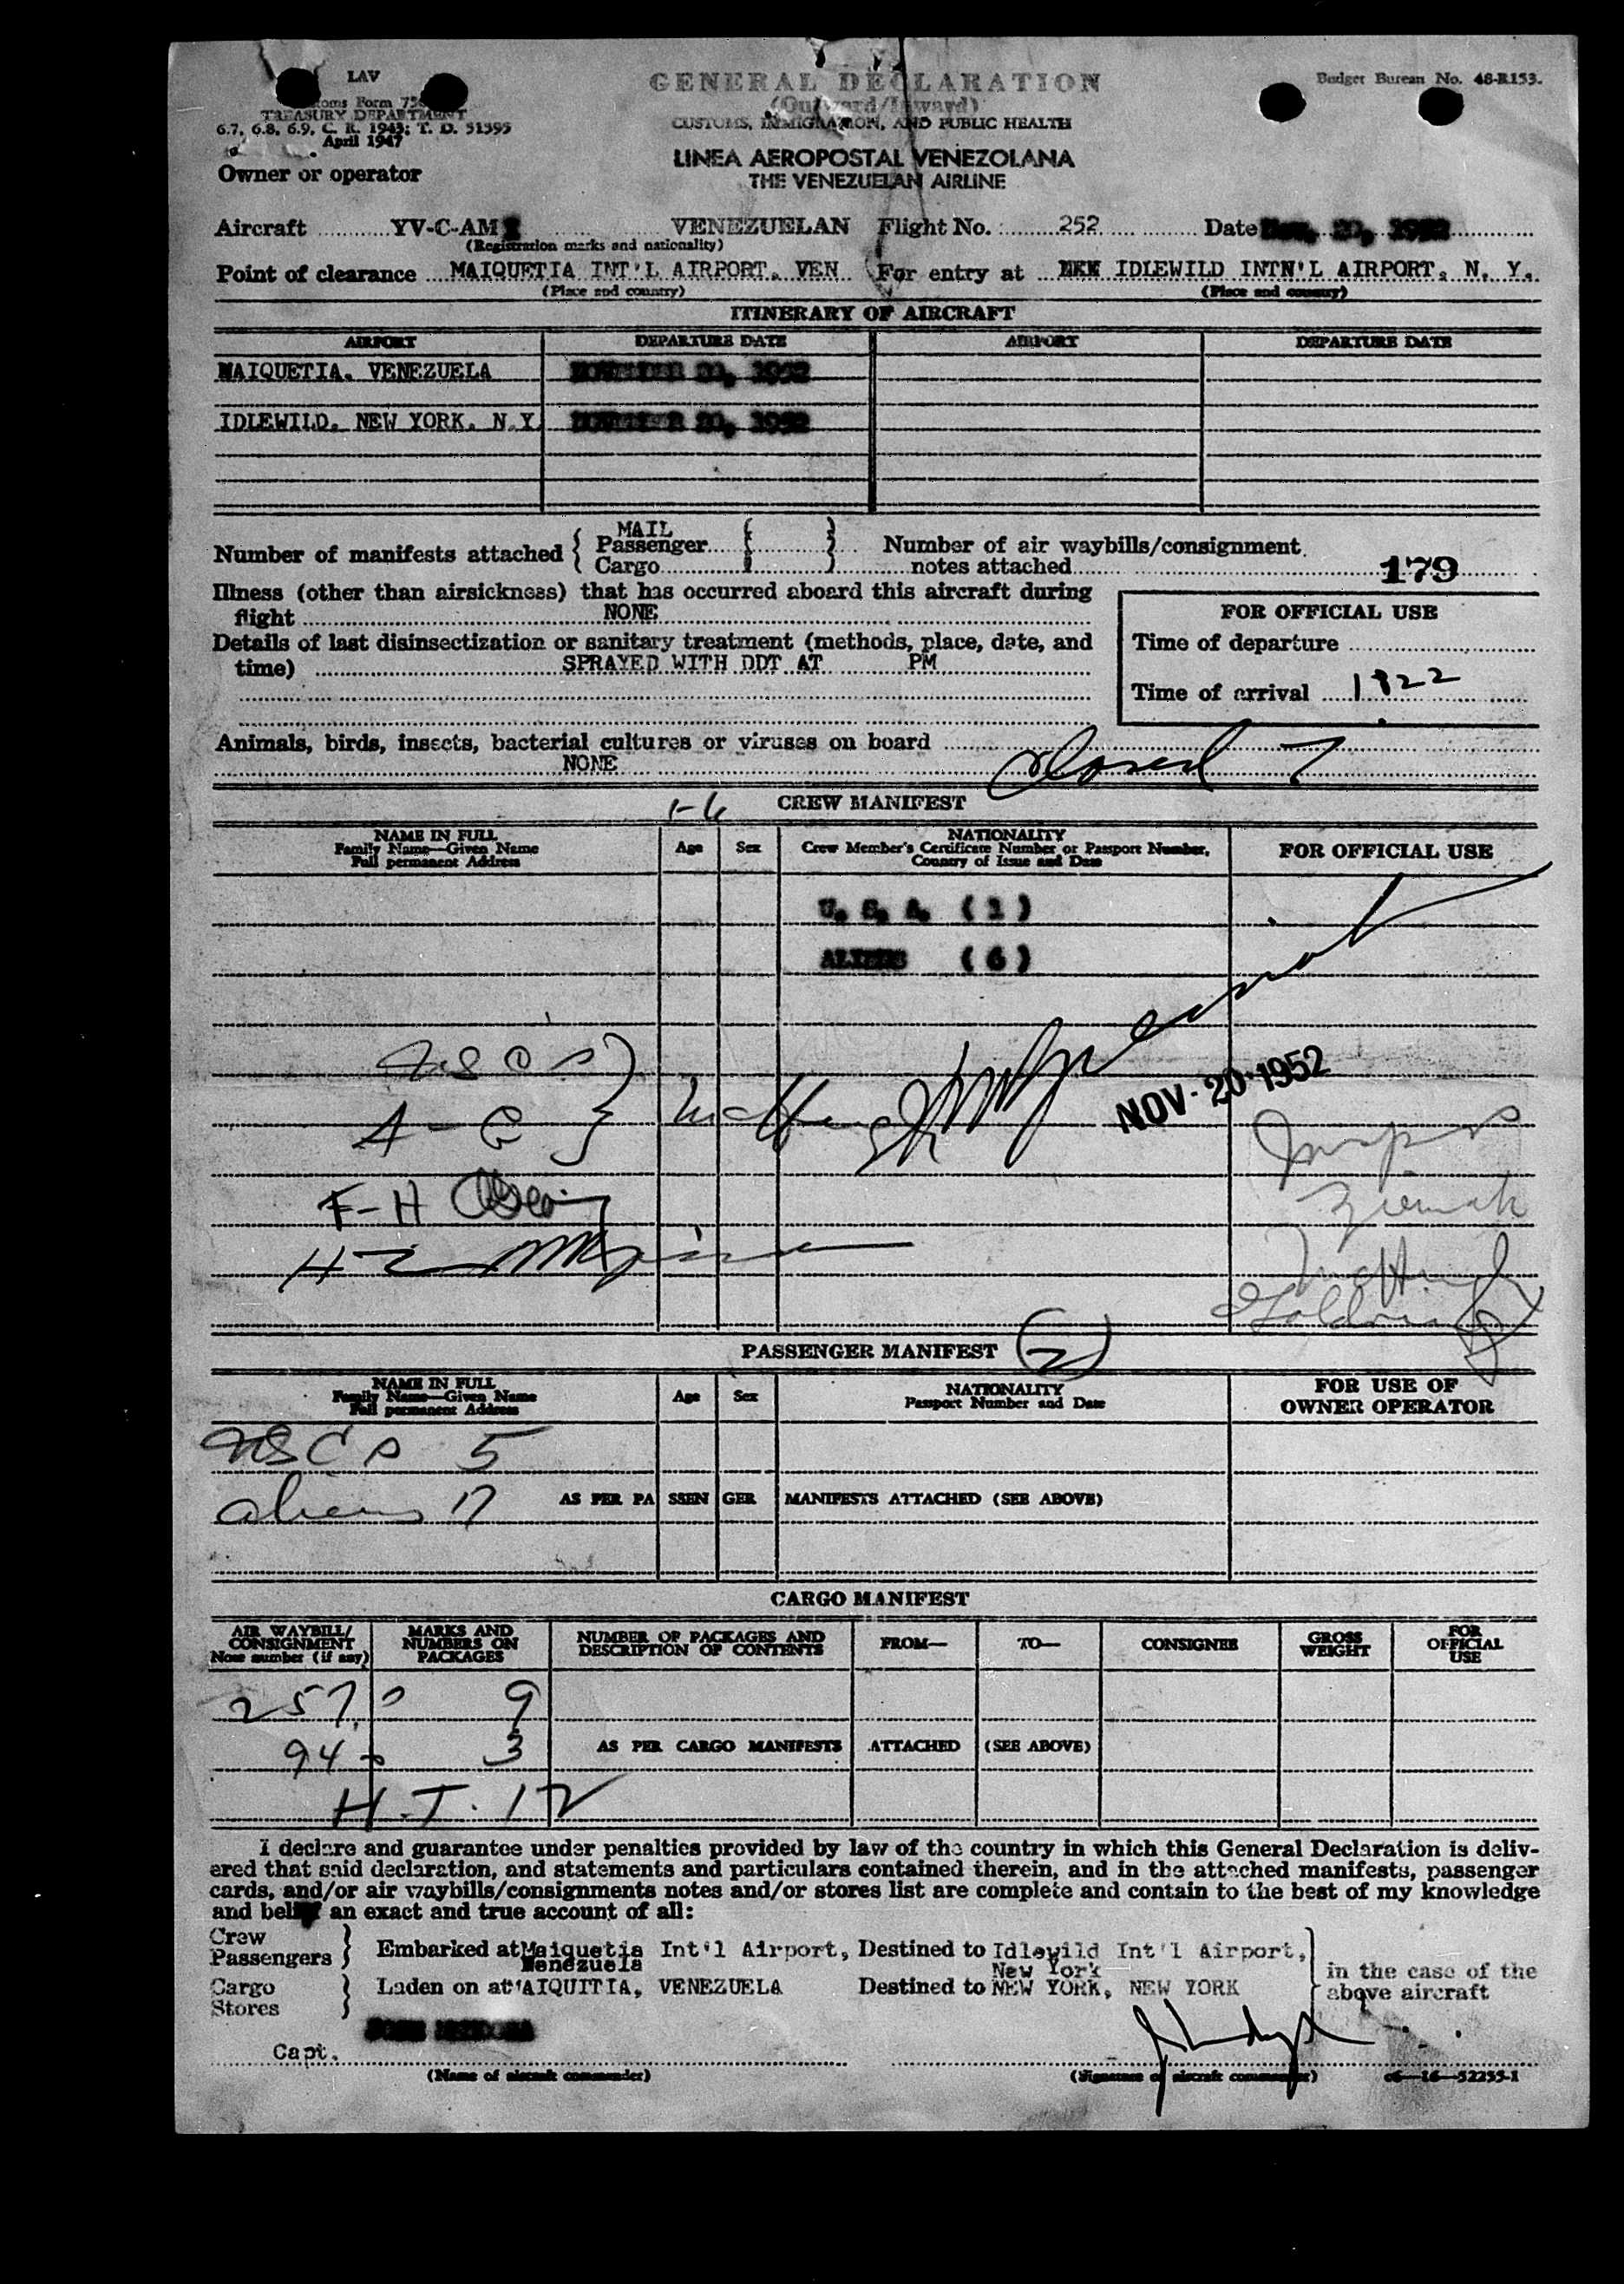 LAV
GENERAL DECLARATION
Budget Bureau No. 48-R153.
Customs Form 75
(Outward/Inward)
TREASURY DEPARTMENT
CUSTOMS, IMMIGRATION, AND PUBLIC HEALTH
6.7, 6.8, 6.9, C. R. 1943; T. D. 51595
April 1947
LINEA AEROPOSTAL VENEZOLANA
THE VENEZUELAN AIRLINE
Owner or operator
Aircraft YV-C-AM VENEZUELAN Flight No. 252 Date Nov. 20, 1952
(Registration marks and nationality)
Point of clearance MAIQUETIA INT'L AIRPORT. VEN For entry at IDLEWILD INTN'L AIRPORT, N. Y.
(Place and country) (Place and country)
ITINERARY OF AIRCRAFT
AIRPORT DEPARTURE DATE AIRPORT DEPARTURE DATE
MAIQUETIA. VENEZUELA NOVEMBER 20, 1952
IDLEWILD. NEW YORK. N.Y. NOVEMBER 20, 1952
MAIL
Number of manifests attached { Passenger
Cargo
Number of air waybills/consignment
notes attached 179
Illness (other than airsickness) that has occurred aboard this aircraft during
flight NONE
FOR OFFICIAL USE
Details of last disinsectization or sanitary treatment (methods, place, date, and
time) SPRAYED WITH DDT AT PM
Time of departure
Time of arrival 1822
Animals, birds, insects, bacterial cultures or viruses on board
NONE
Closed 7
1-6 CREW MANIFEST
NAME IN FULL
Family Name—Given Name
Full permanent Address
Age Sex
NATIONALITY
Crew Member's Certificate Number or Passport Number,
Country of Issue and Date
FOR OFFICIAL USE
U. S. A. (1)
ALIENS (6)
A - G }
NOV-20-1952
F-H
PASSENGER MANIFEST (2)
NAME IN FULL
Family Name—Given Name
Full permanent Address
Age Sex
NATIONALITY
Passport Number and Date
FOR USE OF
OWNER OPERATOR
USCS 5
aliens 17
AS PER PASSENGER MANIFESTS ATTACHED (SEE ABOVE)
CARGO MANIFEST
AIR WAYBILL/
CONSIGNMENT
Note number (if any)
MARKS AND
NUMBERS ON
PACKAGES
NUMBER OF PACKAGES AND
DESCRIPTION OF CONTENTS
FROM— TO— CONSIGNEE
GROSS
WEIGHT
FOR
OFFICIAL
USE
257 9
94 3
AS PER CARGO MANIFESTS ATTACHED (SEE ABOVE)
H.T. 12
I declare and guarantee under penalties provided by law of the country in which this General Declaration is deliv-
ered that said declaration, and statements and particulars contained therein, and in the attached manifests, passenger
cards, and/or air waybills/consignments notes and/or stores list are complete and contain to the best of my knowledge
and belief an exact and true account of all:
Crew
Passengers } Embarked at Maiquetia Int'l Airport, Destined to Idlewild Int'l Airport,
Venezuela New York
Cargo
Stores } Laden on at MAIQUITIA, VENEZUELA Destined to NEW YORK, NEW YORK
in the case of the
above aircraft
Capt.
(Name of aircraft commander) (Signature of aircraft commander) c6—16—52255-1